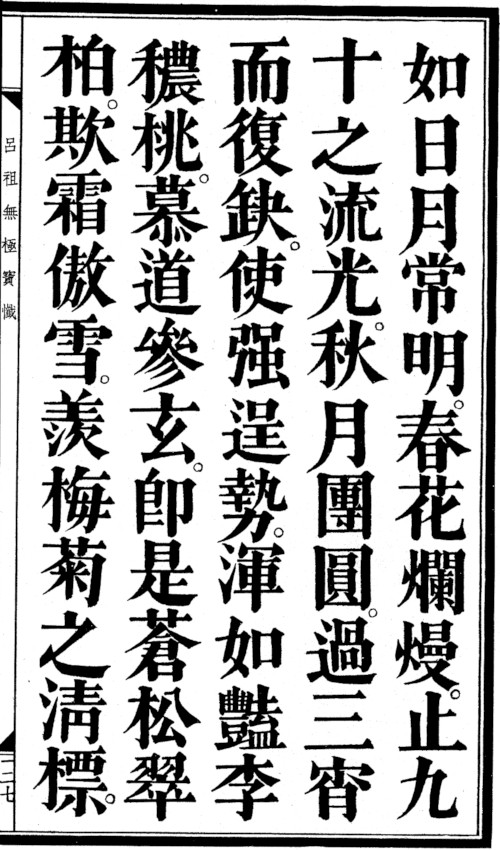 如日月常明。春花爛熳。止九
十之流光。秋月團圓。過三宵
而復缺。使强逞勢。渾如豔李
穠桃。慕道參玄。卽是蒼松翠
柏。欺霜傲雪。羨梅菊之淸標。
呂祖無極寶懺
一二七